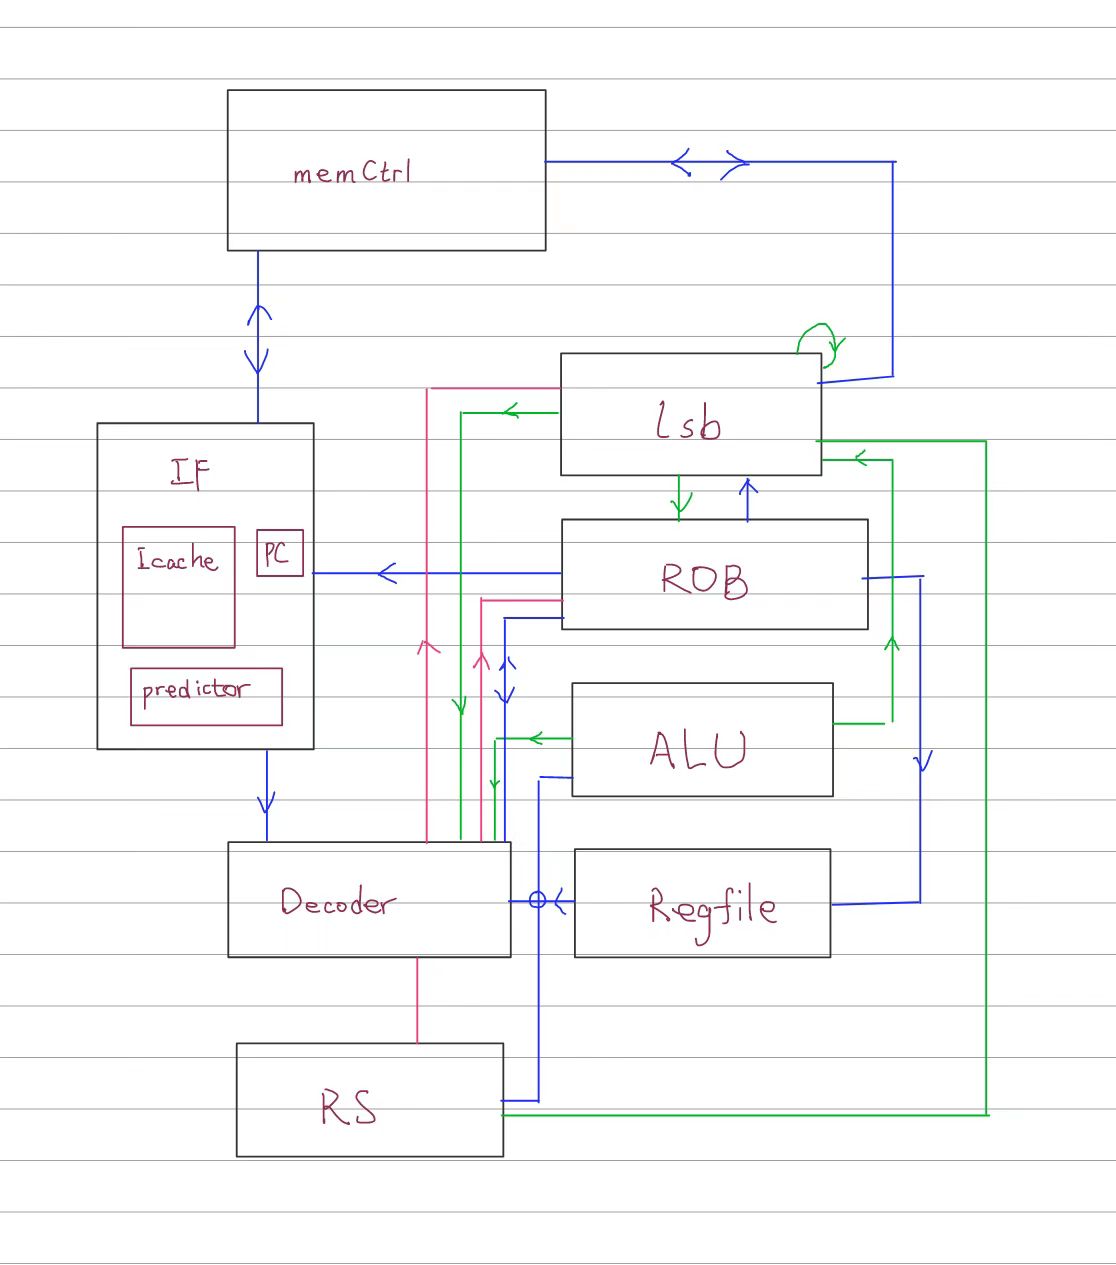 memCtrl
lsb
IF
Icache
PC
ROB
predictor
ALU
Decoder
Regfile
RS